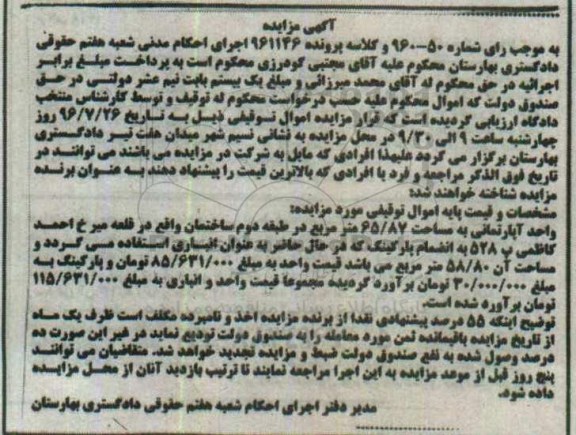 آگهی مزایده
به موجب رای شماره ۵۰-۹۶۰۰ و کلاسه پرونده ۹۶۱۱۴۶ اجرای احکام مدنی شعبه هفتم حقوقی
دادگستری بهارستان محکوم علیه آقای مجتبی گودرزی محکوم است به پرداخت مبلغ برابر
اجرائیه در حق محکوم له آقای محمد میرزائی و مبلغ یک بیستم بابت نیم عشر دولتی در حق
صندوق دولت که اموال محکوم علیه حسب درخواست محکوم له توقیف و توسط کارشناس منتخب
دادگاه ارزیابی گردیده است که قرار مزایده اموال توقیفی ذیل به تاریخ ۹۶/۷/۲۶ روز
چهارشنبه ساعت ۹ الی ۹/۳۰ در محل مزایده به نشانی نسیم شهر میدان هفت تیر دادگستری
بهارستان برگزار می گردد علیهذا افرادی که مایل به شرکت در مزایده می باشند می توانند در
تاریخ فوق الذکر مراجعه و فرد یا افرادی که بالاترین قیمت را پیشنهاد دهند به عنوان برنده
مزایده شناخته خواهند شد:
مشخصات و قیمت پایه اموال توقیفی مورد مزایده:
واحد آپارتمانی به مساحت ۶۵/۸۷ متر مربع در طبقه دوم ساختمان واقع در قلعه میر خ احمد
کاظمی پ ۵۲۸ به انضمام پارکینگ که در حال حاضر به عنوان انباری استفاده می گردد و
مساحت آن ۵۸/۸۰ متر مربع می باشد قیمت واحد به مبلغ ۸۵/۶۳۱/۰۰۰ تومان و پارکینگ به
مبلغ ۳۰/۰۰۰/۰۰۰ تومان برآورد گردیده مجموعا قیمت واحد و انباری به مبلغ ۱۱۵/۶۳۱/۰۰۰
تومان برآورد شده است.
توضیح اینکه ۵۵ درصد پیشنهادی نقدا از برنده مزایده اخذ و نامبرده مکلف است ظرف یک ماه
از تاریخ مزایده باقیمانده ثمن مورد معامله را به صندوق دولت تودیع نماید در غیر این صورت ده
درصد وصول شده به نفع صندوق دولت ضبط و مزایده تجدید خواهد شد. متقاضیان می توانند
پنج روز قبل از موعد مزایده به این اجرا مراجعه نمایند تا ترتیب بازدید آنان از محل مزایده
داده شود.
مدیر دفتر اجرای احکام شعبه هفتم حقوقی دادگستری بهارستان